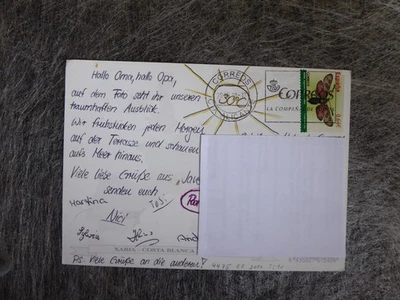 Hallo Oma, hallo Opa,
auf dem Foto seht ihr unseren
traumhaften Ausblick.
Wir frühstücken jeden Morgen
auf der Terrasse und schauen
aufs Meer hinaus.
Viele liebe Grüße aus
senden euch
Martina
Nici
XABIA - COSTA BLANCA
Ps. Viele Grüße an die anderen!
CORREOS
CORREOS
LA COMPAÑÍA DE
España